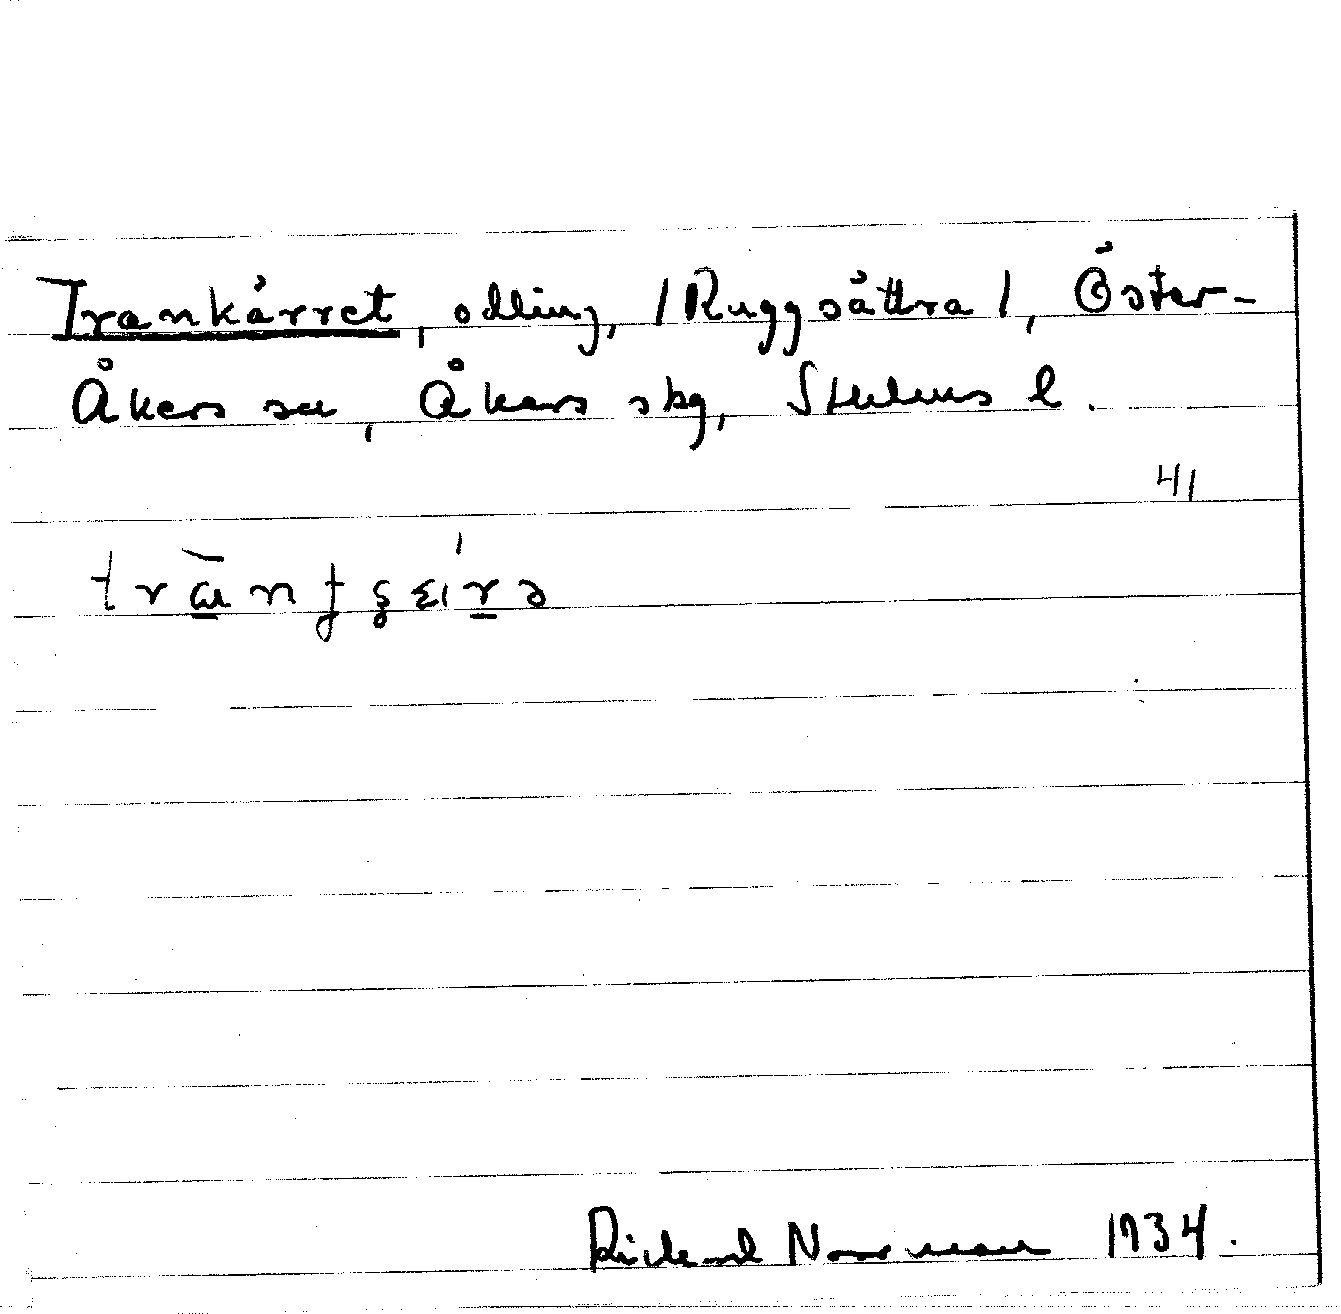 Trankärret, odling, /Ruggsättra/, Öster-
Åkers sn, Åkers skg, Sthlms l.
41
Rickard Norrman 1934.